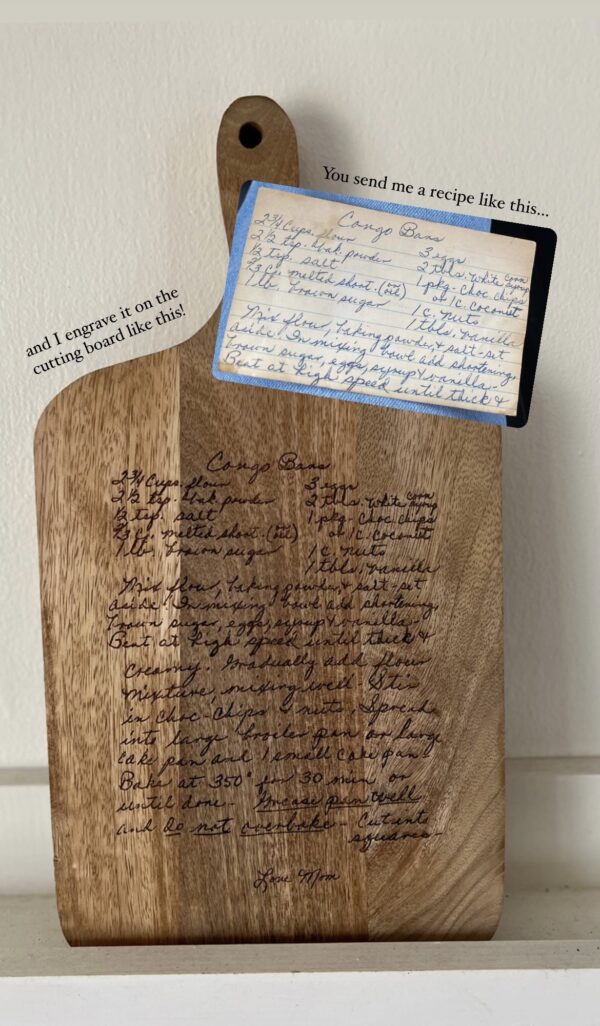 You send me a recipe like this...
Congo Bars
2 3/4 Cups. flour
2 1/2 tsp. bak. powder
1/2 tsp. salt
2/3 C. melted short. (oil)
1 lb. brown sugar
3 eggs
2 tbls. white corn syrup
1 pkg. choc chips
or 1 c. coconut
1 c. nuts
1 tbls. vanilla
Mix flour, baking powder, & salt - set
aside. In mixing bowl add shortening,
brown sugar, eggs, syrup & vanilla -
Beat at high speed until thick &
and I engrave it on the
cutting board like this!
Congo Bars
2 3/4 Cups. flour
2 1/2 tsp. bak. powder
1/2 tsp. salt
2/3 C. melted short. (oil)
1 lb. brown sugar
3 eggs
2 tbls. white corn syrup
1 pkg. choc chips
or 1 c. coconut
1 c. nuts
1 tbls. vanilla
Mix flour, baking powder, & salt - set
aside. In mixing bowl add shortening,
brown sugar, eggs, syrup & vanilla -
Beat at high speed until thick &
creamy. Gradually add flour
mixture, mixing well - Stir
in choc - chips & nuts. Spread
into large broiler pan or large
cake pan and 1 small cake pan -
Bake at 350° for 30 min or
until done - Grease pan well
and do not overbake - Cut into
squares -
Love Mom